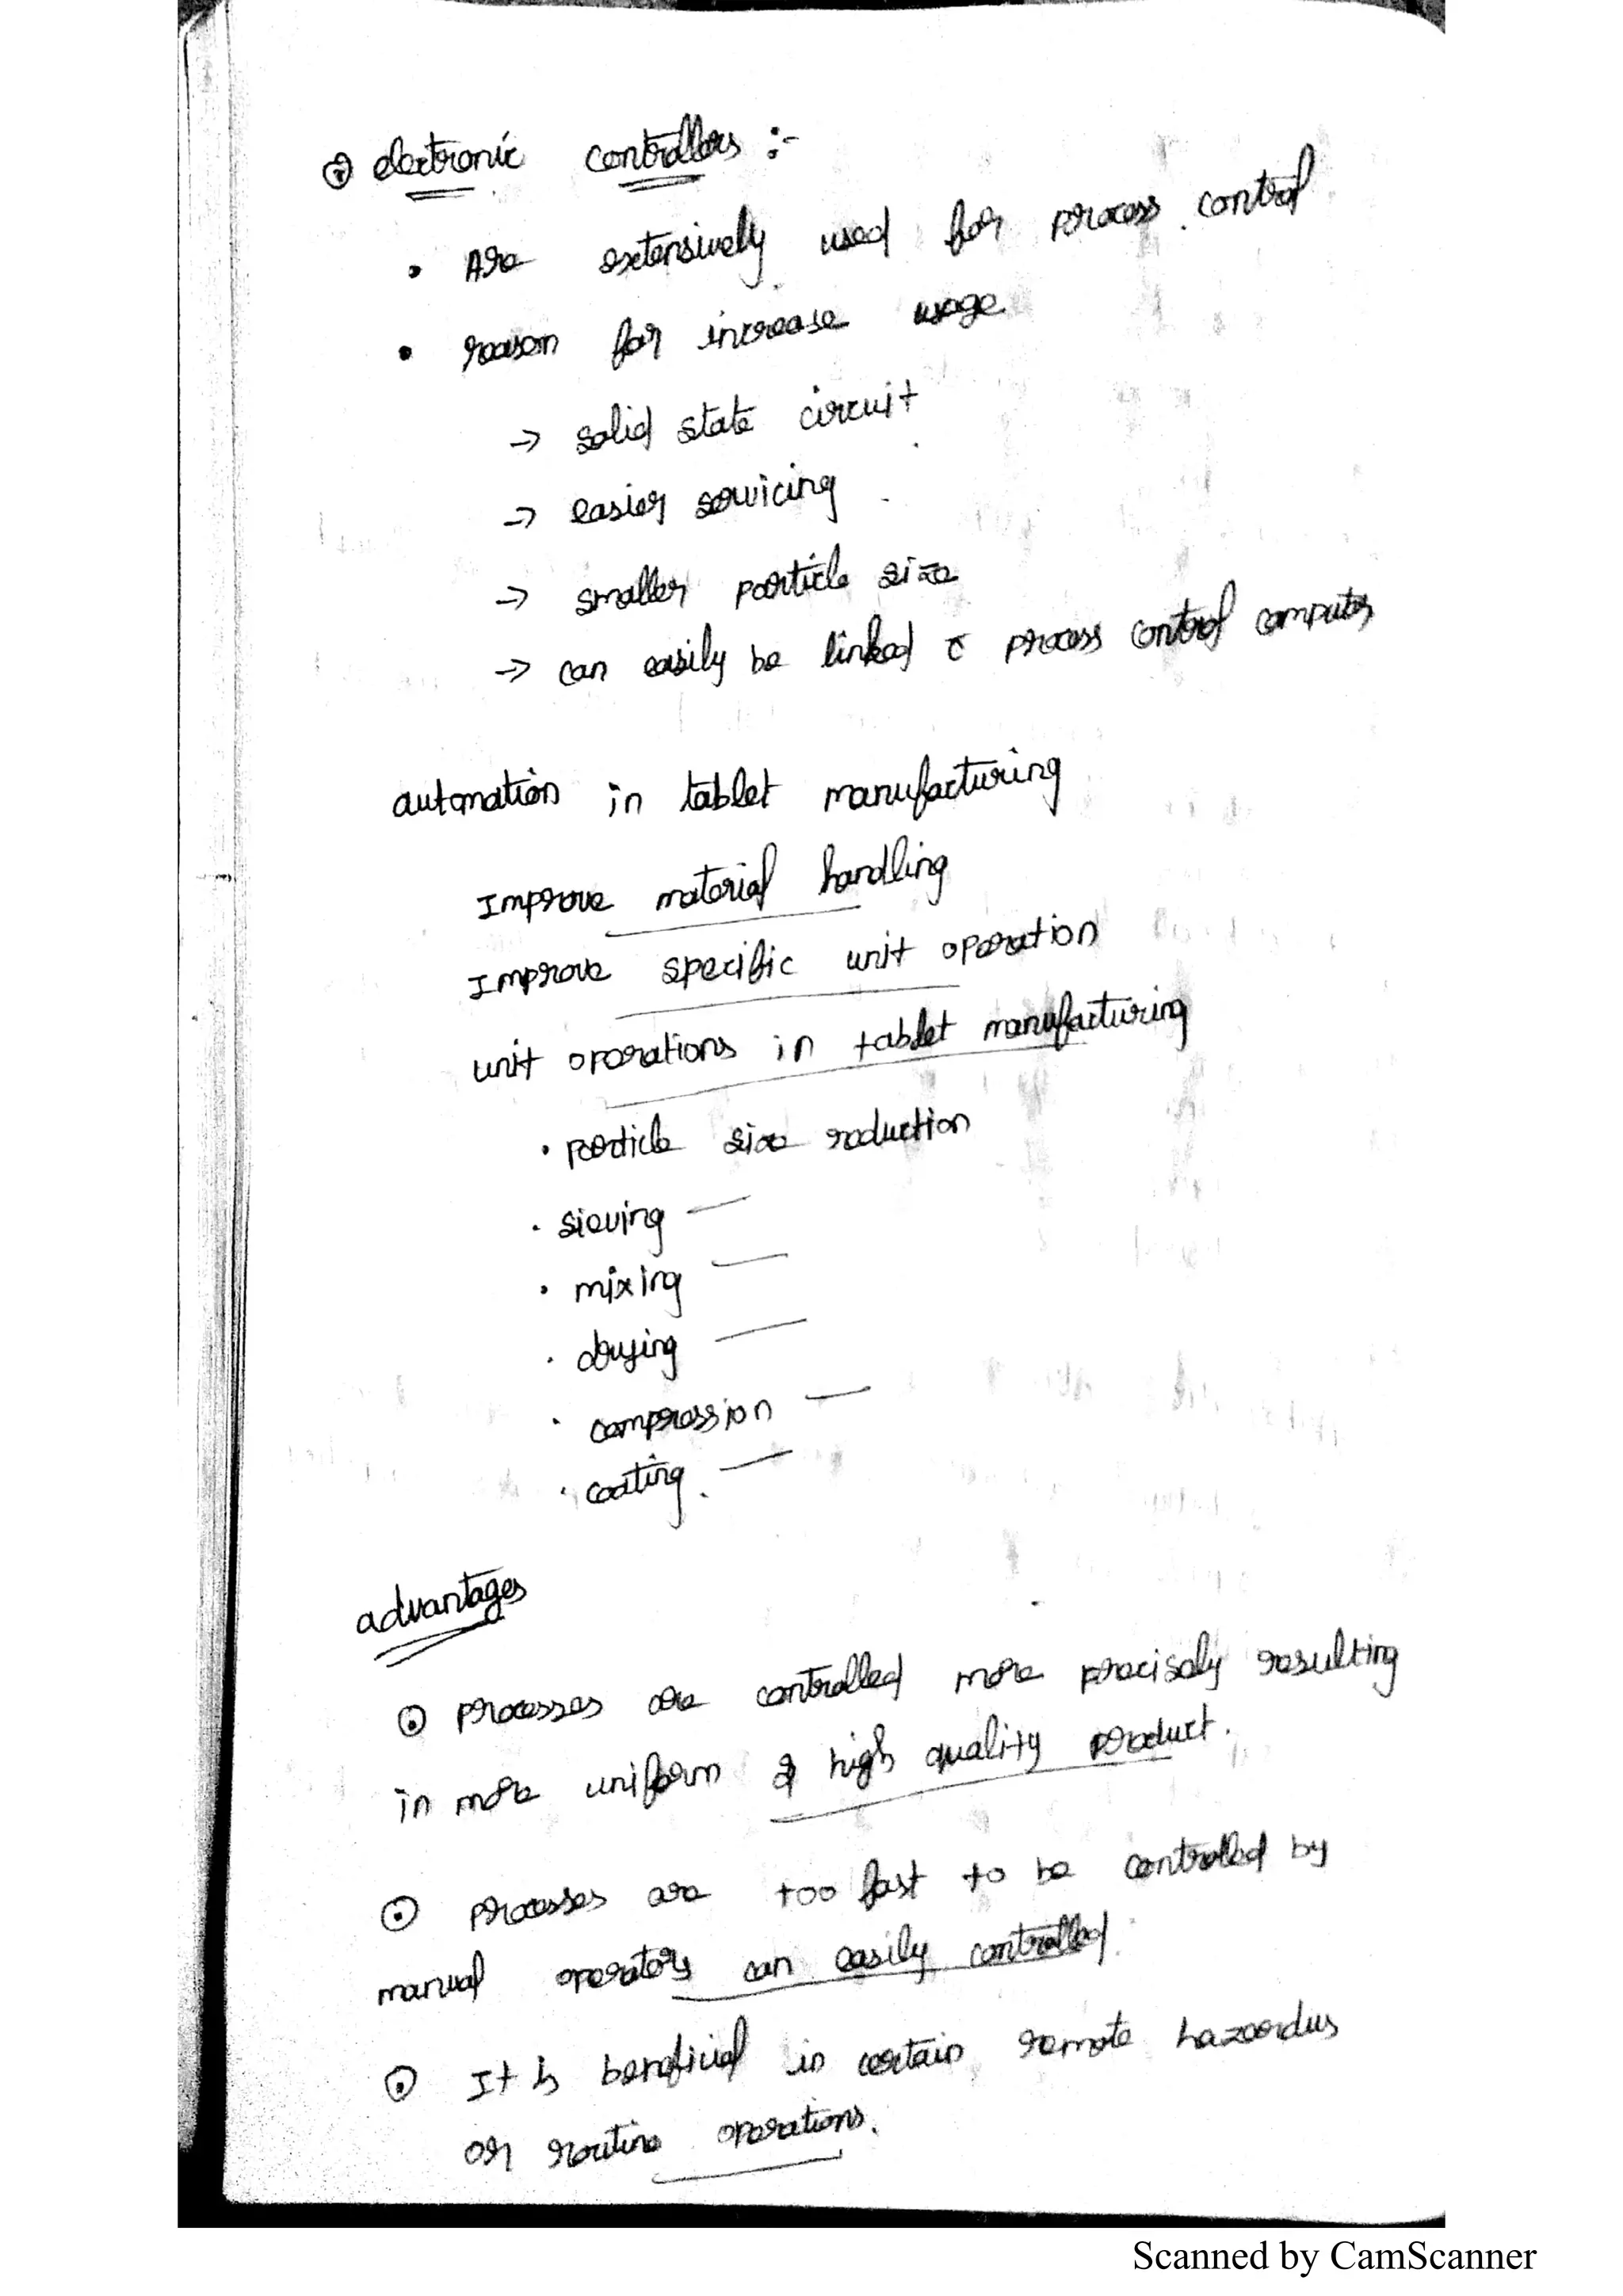 ⊙ electronic controllers :-
• Are extensively used for process control
• reason for increase usage
→ solid state circuit
→ easier servicing
→ smaller particle size
→ can easily be linked c̄ process control computers
automation in tablet manufacturing
Improve material handling
Improve specific unit operation
unit operations in tablet manufacturing
• particle size reduction
• sieving —
• mixing —
• drying —
• compression —
• coating. —
advantages
⊙ processes are controlled more precisely resulting
in more uniform & high quality product.
⊙ processes are too fast to be controlled by
manual operators can easily controlled.
⊙ It is beneficial in certain remote hazardus
or routine operations.
Scanned by CamScanner